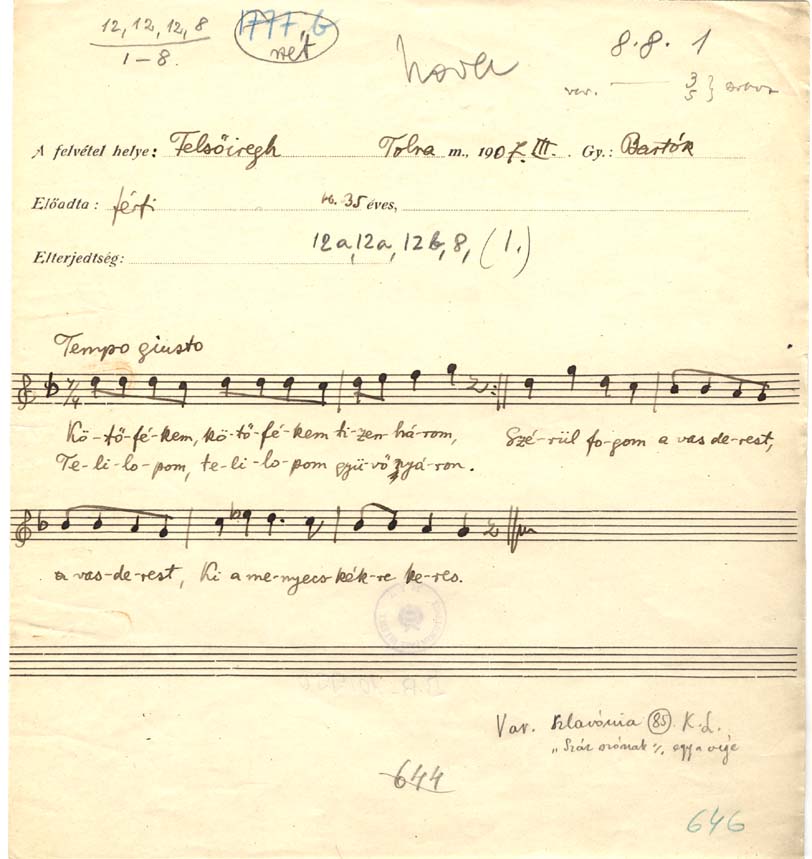 12, 12, 12, 8
1–8.
1777, b
8. 8. 1
var. 3
5
A felvétel helye: Felsőiregh Tolna m., 1907. III. Gy.: Bartók
Előadta: férfi k. 35 éves,
Elterjedtség: 12a, 12a, 12b, 8, (1.)
Tempo giusto
7/4
Kö-tő-fé-kem, kö-tő-fé-kem ti-zen-há-rom, Szé-rül fo-gom a vas de-rest,
Te-li-lo-pom, te-li-lo-pom gyü-vő nyá-ron.
a vas-de-rest, Ki a me-nyecs-kék-re ke-res.
Var. Szlavónia 85 K. L.
egy a vége
644
646